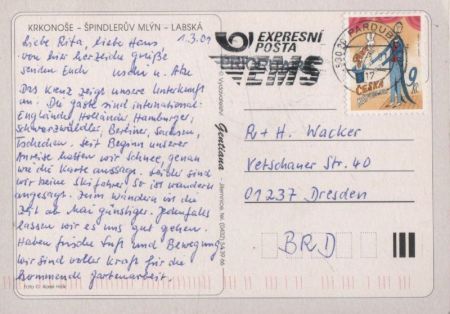 KRKONOŠE – ŠPINDLERŮV MLÝN – LABSKÁ
1.3.01
Liebe Rita, lieber Hans,
von hier herzliche Grüße
senden Euch Uschi u. Atze
Das Kreuz zeigt unsere Unterkunft
an. Die Gäste sind international:
Engländer, Holländer, Hamburger,
Schwarzwälder, Berliner, Sachsen,
Tschechen. Seit Beginn unserer
Anreise hatten wir Schnee, genau
wie die Karte aussagt. Leider sind
wir keine Skifahrer. So ist wandern
angesagt. Zum Wandern ist die
Zeit ab Mai günstiger. Jedenfalls
lassen wir es uns gut gehen.
Haben frische Luft und Bewegung
Wir sind voller Kraft für die
kommende Gartenarbeit.
Foto ©
EXPRESNÍ
POŠTA
EMS
PARDUBI
530 20
ČESKÁ
9 Kč
Gentiana
R + H. Wacker
Vetschauer Str. 40
01237 Dresden
BRD